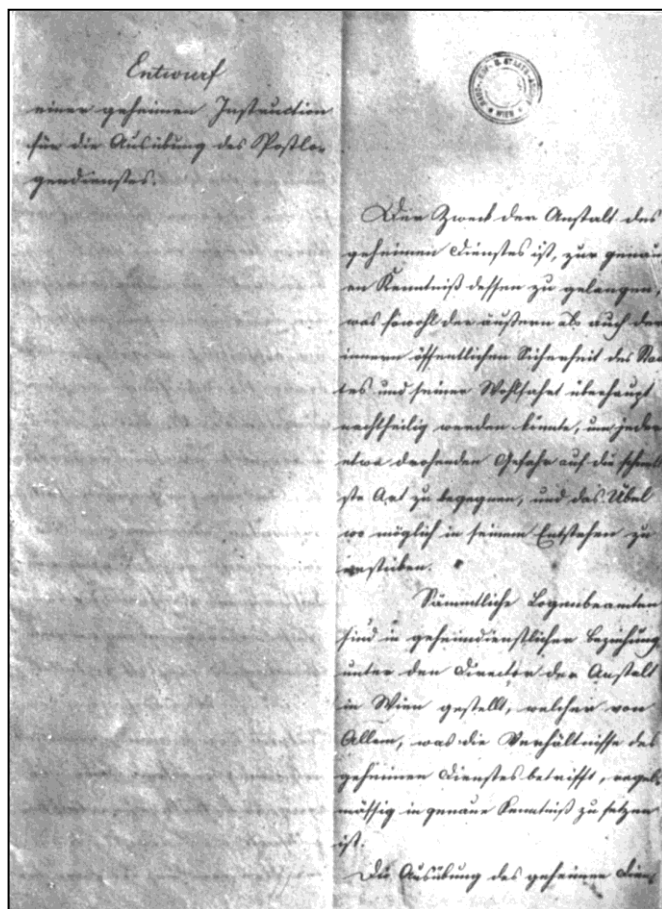 Entwurf
einer geheimen Instruction
für die Ausübung des Postlo-
gendienstes.
Der Zweck der Anstalt des
geheimen Dienstes ist, zur genau
en Kenntniß dessen zu gelangen,
was sowohl der äußern als auch der
innern öffentlichen Sicherheit des Staa
tes und seiner Wohlfahrt überhaupt
nachtheilig werden könnte, um jeder
etwa drohenden Gefahr auf die schnell
ste Art zu begegnen, und das Übel
wo möglich in seinem Entstehen zu
ersticken.
Sämmtliche Logenbeamten
sind in geheimdienstlicher Beziehung
unter den Director der Anstalt
in Wien gestellt, welcher von
Allem, was die Verhältnisse des
geheimen Dienstes betrifft, regel-
mässig in genaue Kenntniß zu setzen
ist.
Die Ausübung des geheimen Dien-
WIEN